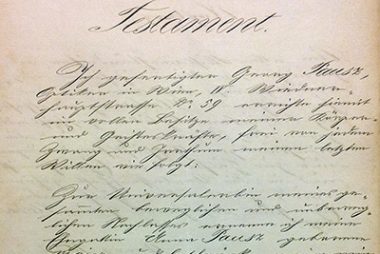 Testament.
Ich gefertigter Georg Pausz,
Optiker in Wien, IV. Wiedner-
hauptstrasse No 59 errichte hiemit
im vollen Besitze meiner Körper-
und Geisteskräfte, frei von jedem
Zwang und Irrthum meinen letzten
Willen wie folgt:
Zur Universalerbin meines ge-
samten beweglichen und unbeweg-
lichen Nachlasses ernenne ich meine
Ehegattin Anna Pausz geborene